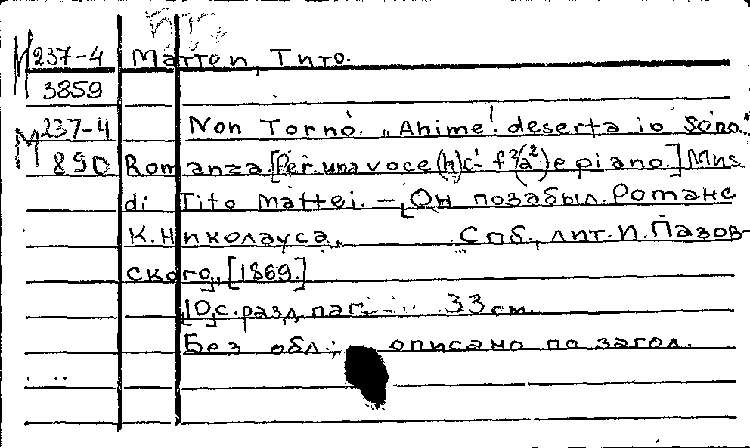 М 237-4 Маттеи, Тито.
3859
М 237-4 Non Tornò. „Ahime! deserta io sono."
890 Romanza [Per una voce (h) c¹- f²(a²) e piano.] Mus.
di Tito Mattei. – [Он позабыл. Романс
К. Николауса. Спб., лит. И. Пазов-
ского, [1869.]
[10] с. разд. паг. 33 см.
Без обл.; описано по загол.